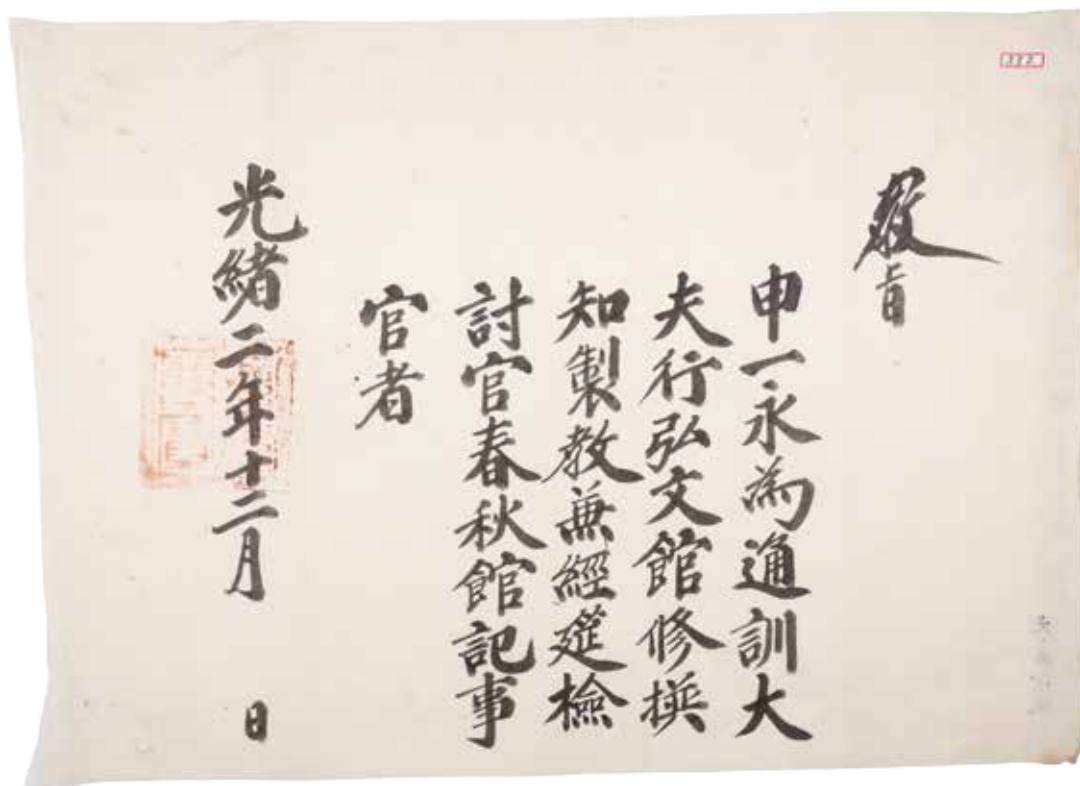 敎旨
申一永為通訓大
夫行弘文館修撰
知製敎兼經筵檢
討官春秋館記事
官者
光緒二年十二月 日